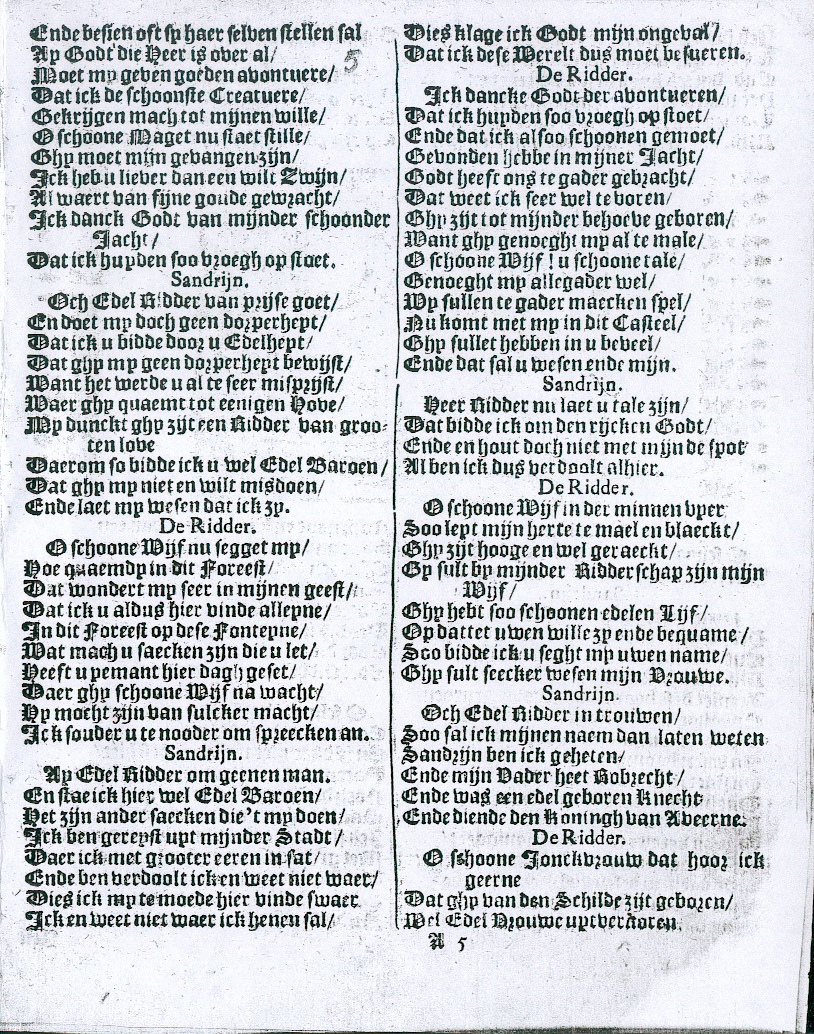 Ende besien oft sy haer selven stellen sal
Ay Godt die Heer is over al/
Moet my geven goeden abontuere/
Dat ick de schoonste Creatuere/
Gekrijgen mach tot mijnen wille/
O schoone Maget nu staet stille/
Ghy moet mijn gevangen zijn/
Ick heb u liever dan een wilt Zwijn/
Al waert van fijne goude gewracht/
Ick danck Godt van mijnder schoonder
Jacht/
Dat ick huyden soo vroegh op stoet.
Sandrijn.
Och Edel Ridder van prijse goet/
En doet my doch geen dorperheyt/
Dat ick u bidde door u Edelheyt/
Dat ghy my geen dorperheyt bewijst/
Want het werde u al te seer misprijst/
Waer ghy quaemt tot eenigen Hove/
My dunckt ghy zijt een Ridder van groo-
ten love
Daerom so bidde ick u wel Edel Baroen/
Dat ghy my niet en wilt misdoen/
Ende laet my wesen dat ick zy.
De Ridder.
O schoone Wijf nu segget my/
Hoe quaemdy in dit Foreest/
Dat wondert my seer in mijnen geest/
Dat ick u aldus hier vinde alleyne/
In dit Foreest op dese Fonteyne/
Wat mach u saecken zijn die u let/
Heeft u yemant hier dagh geset/
Daer ghy schoone Wijf na wacht/
Hy mocht zijn van sulcker macht/
Ick souder u te nooder om spreecken an.
Sandrijn.
Ay Edel Ridder om geenen man.
En stae ick hier wel Edel Baroen/
Het zijn ander saecken die't my doen/
Ick ben gereyst uyt mijnder Stadt/
Daer ick met grooter eeren in sat/
Ende ben verdoolt ick en weet niet waer/
Dies ick my te moede hier vinde swaer
Ick en weet niet waer ick henen sal/
5
Dies klage ick Godt mijn ongeval/
Dat ick dese Werelt dus moet besueren.
De Ridder.
Ick dancke Godt der abontueren/
Dat ick huyden soo vroegh op stoet/
Ende dat ick alsoo schoonen gemoet/
Gevonden hebbe in mijner Jacht/
Godt heeft ons te gader gebracht/
Dat weet ick seer wel te voren/
Ghy zijt tot mijnder behoeve geboren/
Want ghy genoeght my al te male/
O schoone Wijf! u schoone tale/
Genoeght my allegader wel/
Wy sullen te gader maecken spel/
Nu komt met my in dit Casteel/
Ghy sullet hebben in u beveel/
Ende dat sal u wesen ende mijn.
Sandrijn.
Heer Ridder nu laet u tale zijn/
Dat bidde ick om den rijcken Godt/
Ende en hout doch niet met mijn de spot
Al ben ick dus verdoolt alhier.
De Ridder.
O schoone Wijf in der minnen vyer
Soo leyt mijn herte te mael en blaeckt/
Ghy zijt hooge en wel geraeckt/
Gy sult by mijnder Ridderschap zijn mijn
Wijf/
Ghy hebt soo schoonen edelen Lijf/
Op dattet uwen wille zy ende bequame/
Soo bidde ick u seght my uwen name/
Ghy sult seecker wesen mijn Vrouwe.
Sandrijn.
Och Edel Ridder in trouwen/
Soo sal ick mijnen naem dan laten weten
Sandrijn ben ick geheten/
Ende mijn Vader heet Robrecht/
Ende was een edel geboren Knecht
Ende diende den Koningh van Aveerne.
De Ridder.
O schoone Jonckvrouw dat hoor ick
geerne
Dat ghy van den Schilde zijt geboren/
Wel Edel Vrouwe uytverkoren.
A 5